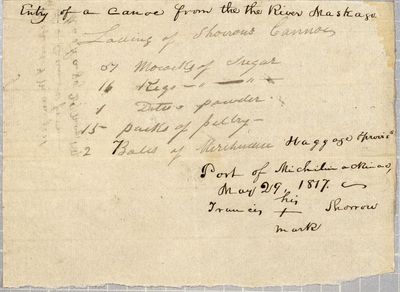 Entry of a Canoe from the the River Maskago
Lading of Shorrows Cannoe
07 Mococks of Sugar
16 Kegs - " - " -
1 Ditto powder
15 packs of peltry -
2 Bales of Merchandise Baggage & provis^s
Port of Michilimackinac,
May 29, 1817.
his
Francis + Shorrow
mark